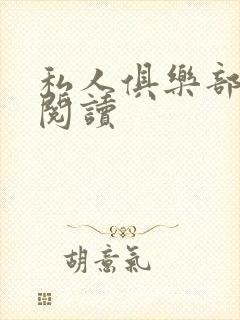 私人俱樂部
閱讀
胡意氣